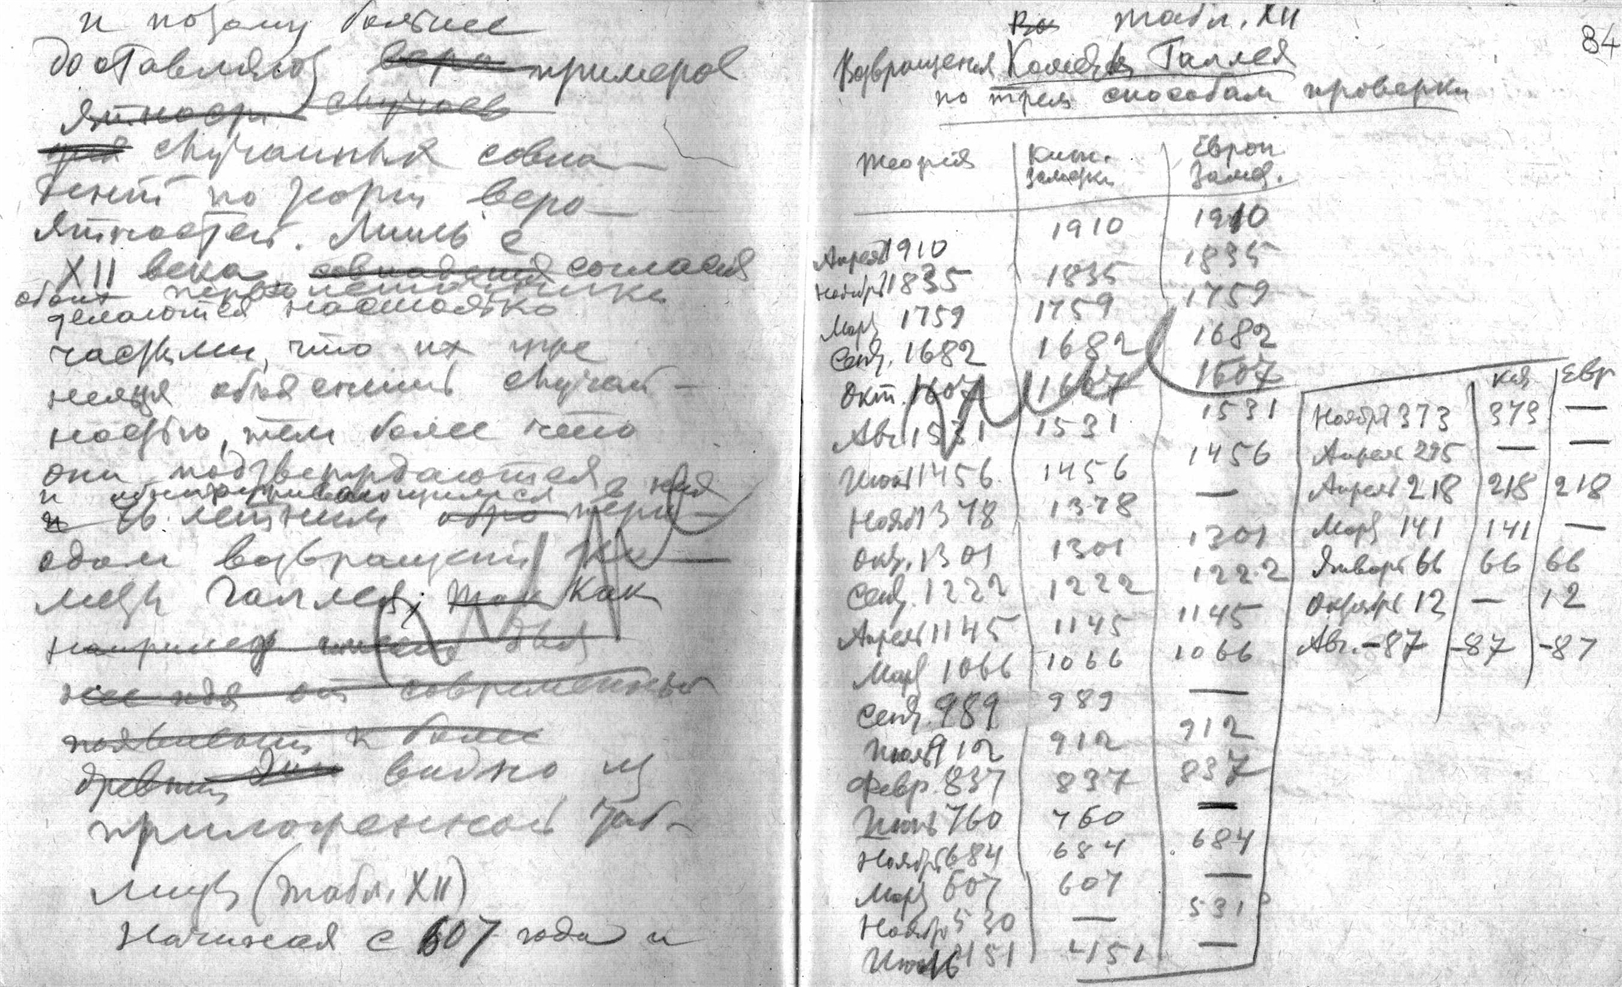 и потому больше
доставляю
вероятност случаев примеров
случайных совпа-
по теории веро-
ятностей. Лишь с
XII века совпадения согласия
обоих первоисточника
делаются настолько
частыми, что их уже
нельзя объяснить случай-
ностью, тем более что
они подтверждаются
и в летним обра пери-
одом возвращений Ко-
меты Галлея, так как
например имеем два
от современных
к более
древним видно из
приложенной таб-
лицы (табл. XII)
Начиная с 607 года и
84
табл. XII
Возвращения Кометы Галлея
по трем способам проверки
Теория Кит. записки Европ. запис.
Апрель 1910 1910 1910
Ноябрь 1835 1835 1835
Март 1759 1759 1759
Сент. 1682 1682 1682
Окт. 1607 1607 1607
Авг. 1531 1531 1531
Июнь 1456 1456 1456
Нояб 1378 1378 —
Окт. 1301 1301 1301
Сент. 1222 1222 1222
Апрель 1145 1145 1145
Март 1066 1066 1066
Сент. 989 989 —
Июль 912 912 912
Февр. 837 837 837
Июнь 760 760 —
Ноябрь 684 684 684
Март 607 607 —
Ноябрь 530 — 531
Июнь 451 451 —
Кит Евр
Ноябрь 373 373 —
Апрель 295 — —
Апрель 218 218 218
Март 141 141 —
Январь 66 66 66
Октябрь 12 — 12
Авг. -87 -87 -87